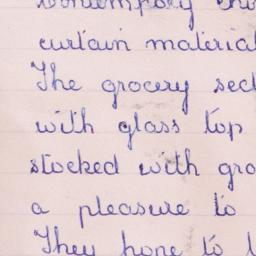 curtain material
The grocery sec
with glass top
stocked with gro
a pleasure to
They hope to